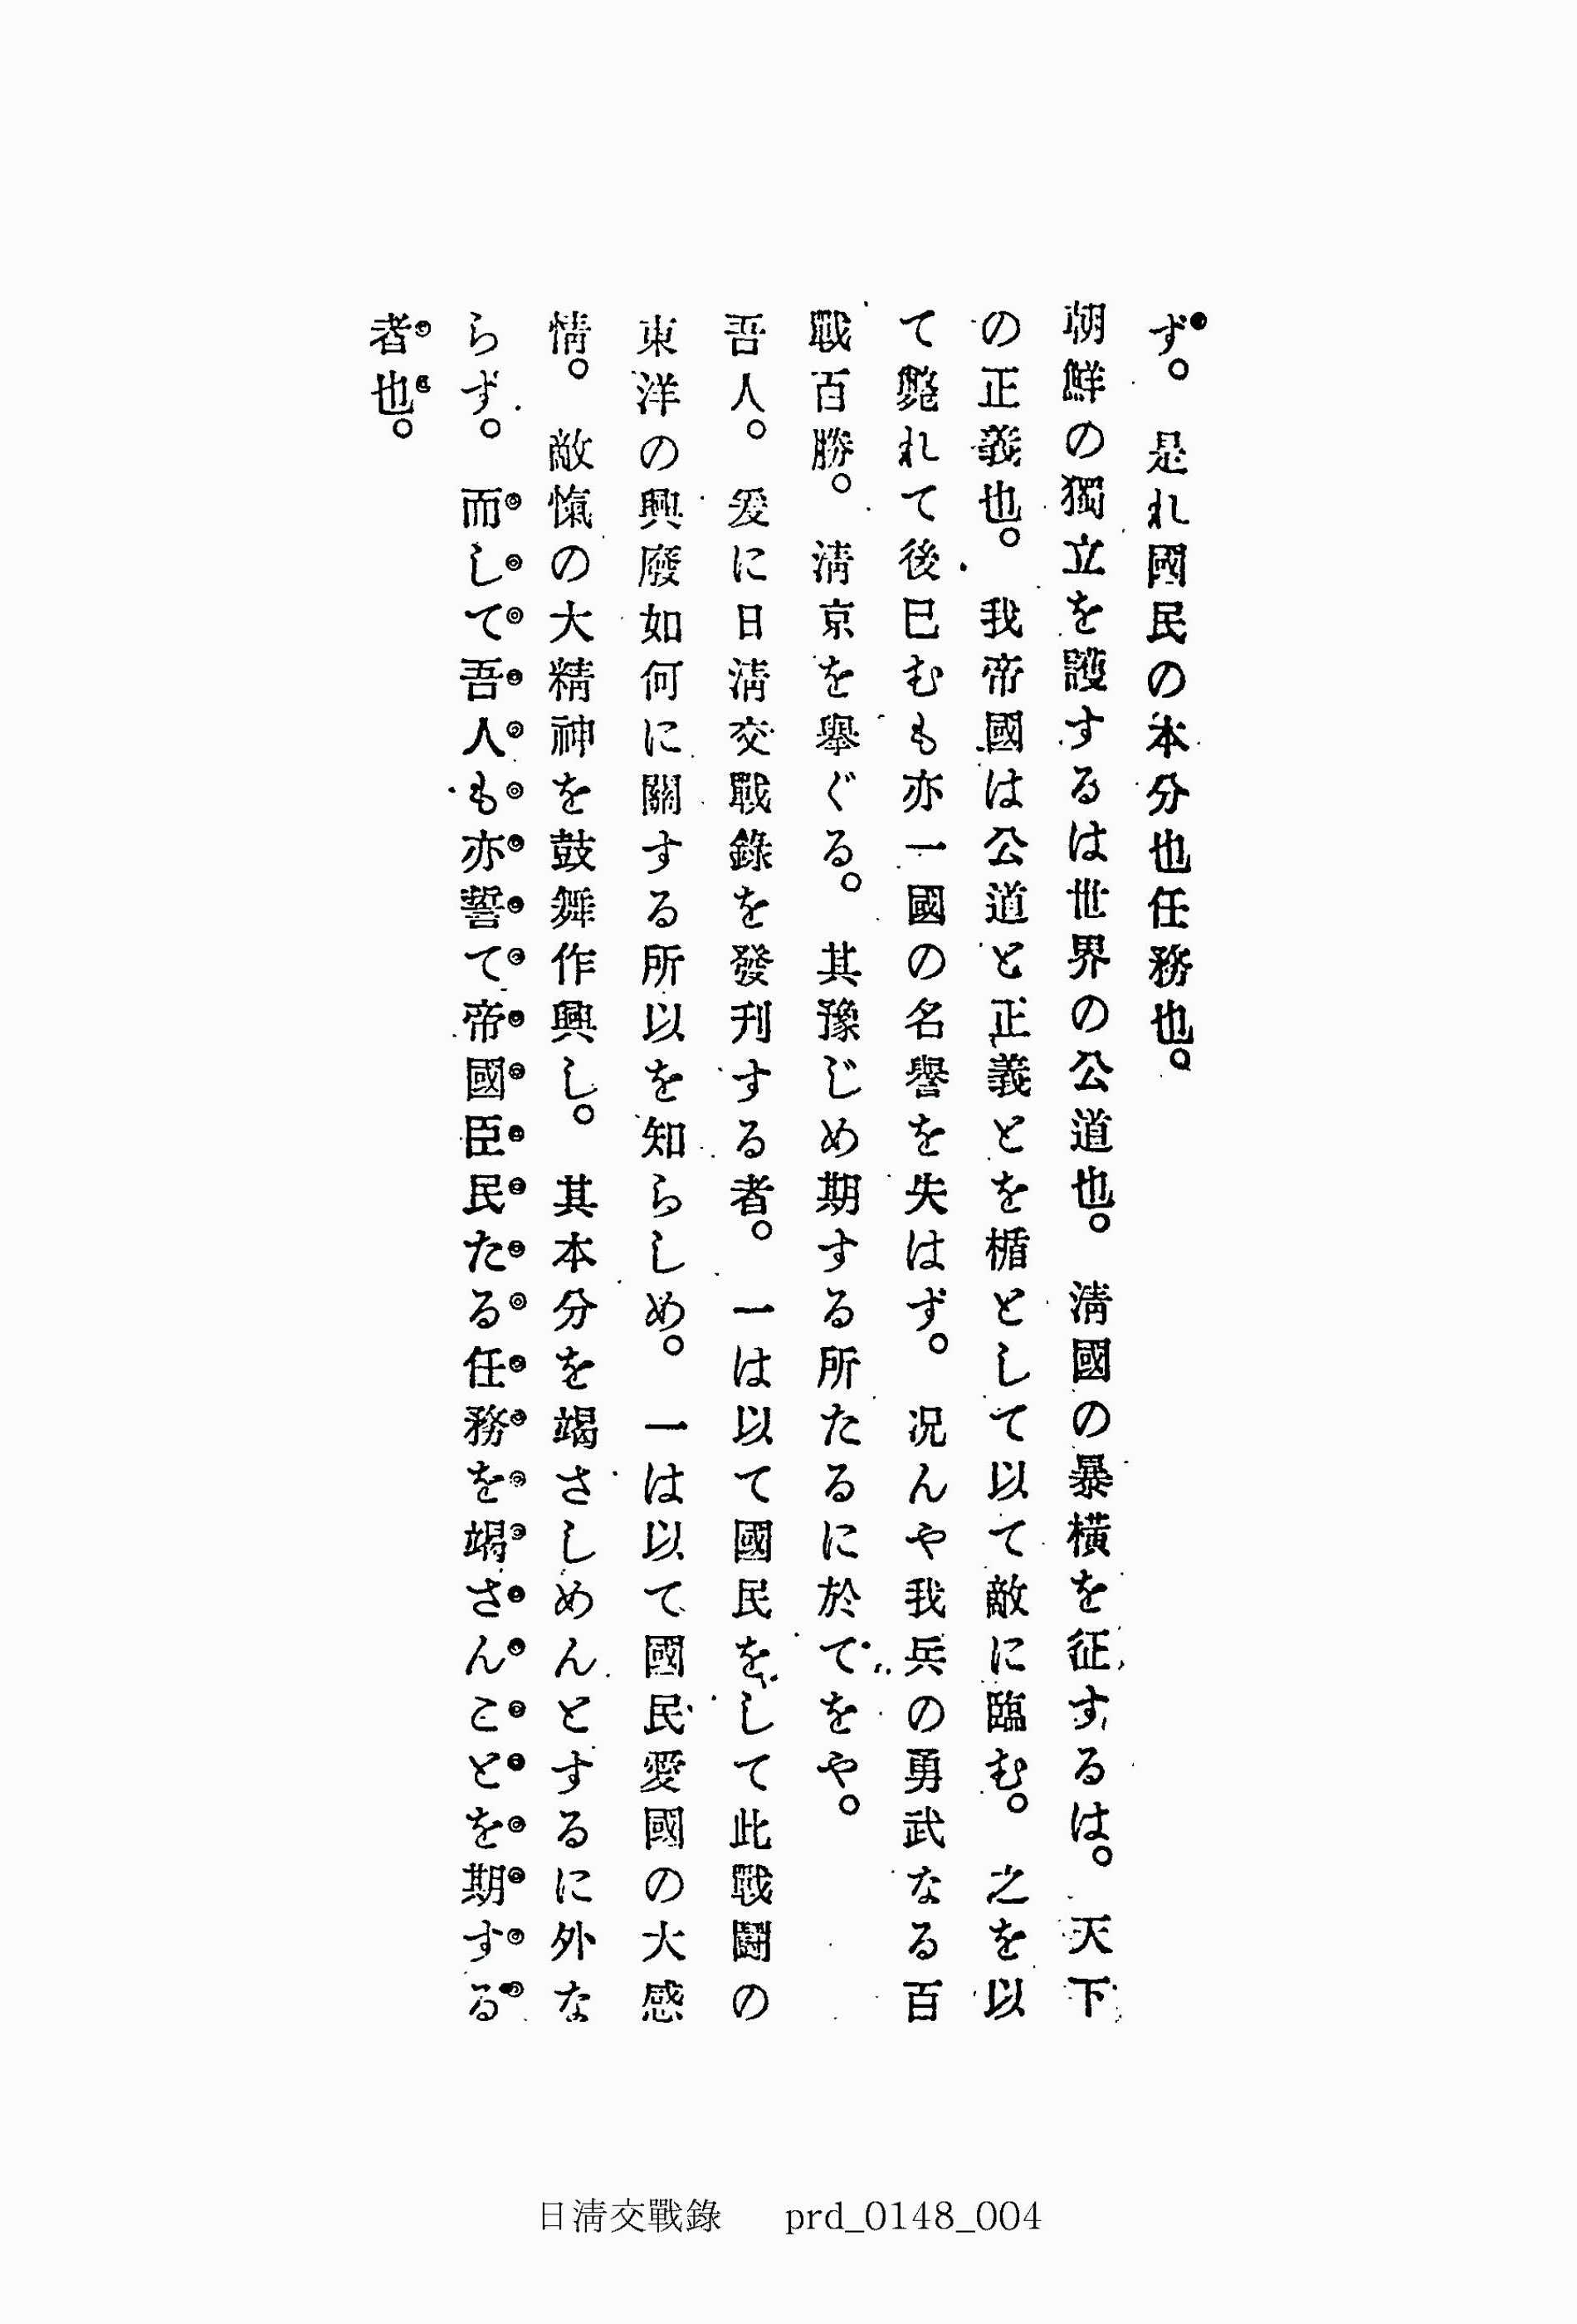 ず。是れ國民の本分也任務也。
朝鮮の獨立を護するは世界の公道也。淸國の暴橫を征するは。天下
の正義也。我帝國は公道と正義とを楯として以て敵に臨む。之を以
て斃れて後巳むも亦一國の名譽を失はず。况んや我兵の勇武なる百
戰百勝。淸京を舉ぐる。其豫じめ期する所たるに於てをや。
吾人。爰に日淸交戰錄を發刊する者。一は以て國民をして此戰鬪の
東洋の興廢如何に關する所以を知らしめ。一は以て國民愛國の大感
情。敵愾の大精神を鼓舞作興し。其本分を竭さしめんとするに外な
らず。而して吾人も亦誓て帝國臣民たる任務を竭さんことを期する
者也。
日淸交戰錄 prd_0148_004